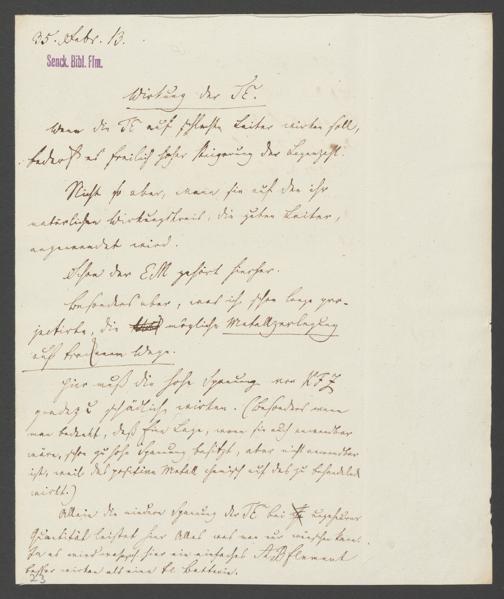 25. Febr. 13.
Senck. Bibl. Ffm.
Wirkung der TE.
Wenn die TE auf schlechte Leiter wirken soll,
bedarf es freilich hoher Steigerung der Lagenzahl.
Nicht so aber, wenn sie auf den ihr
natürlichen Wirkungskreis, die guten Leiter,
angewendet wird.
Schon der EM gehört hierher.
Besonders aber, was ich schon lange pro-
jectirte, die mögliche Metallzerlegung
auf trocknem Wege.
Hier muß die hohe Spannung von KFZ
geradezu schädlich wirken. (Besonders wenn
man bedenkt, daß Eine Lage, wenn sie auch anwendbar
wäre, schon zu hohe Spannung besitzt, aber nicht anwendbar
ist, weil das positive Metall chemisch auf das zu behandelnde
wirkt.)
Allein die niedere Spannung der TE bei ungeheurer
Quantität leistet hier Alles was man nur wünschen kann.
Ja es wird hier ein einfaches AB Element
besser wirken als eine el. Batterie.
23